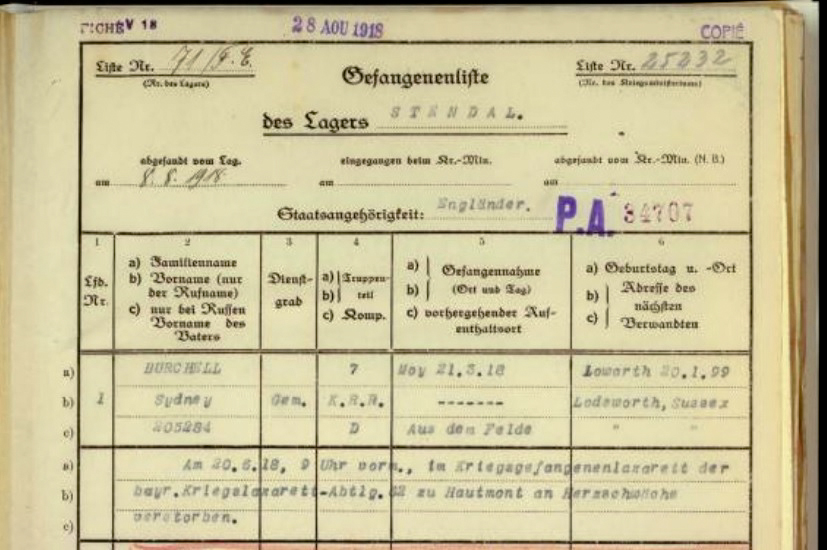 FICHÉ V 18 28 AOU 1918 COPIÉ
Liste Nr. 71/F.E. Liste Nr. 25232
(Nr. des Lagers) (Nr. des Kriegsministeriums)
Gefangenenliste
des Lagers STENDAL.
abgesandt vom Lag. eingegangen beim Kr.-Min. abgesandt vom Kr.-Min. (N.B.)
am 8.8.1918 am am
Staatsangehörigkeit: Engländer. P.A. 34707
1 2 3 4 5 6
Lfd. Nr.
a) Familienname
b) Vorname (nur
der Rufname)
c) nur bei Russen
Vorname des
Vaters
Dienst-
grad
a) Truppen-
b) teil
c) Komp.
a) Gefangennahme
b) (Ort und Tag)
c) vorhergehender Auf-
enthaltsort
a) Geburtstag u. -Ort
b) Adresse des
nächsten
c) Verwandten
a) BURCHELL 7 Moy 21.3.18 Loworth 20.1.99
b) 1 Sydney Gem. K.R.R. ------- Lodsworth, Sussex
c) 205284 D Aus dem Felde " "
a) Am 20.6.18, 9 Uhr vorm., im Kriegsgefangenenlazarett der
b) bayr.Kriegslazarett-Abtlg. 62 zu Hautmont an Herzschwäche
c) verstorben.